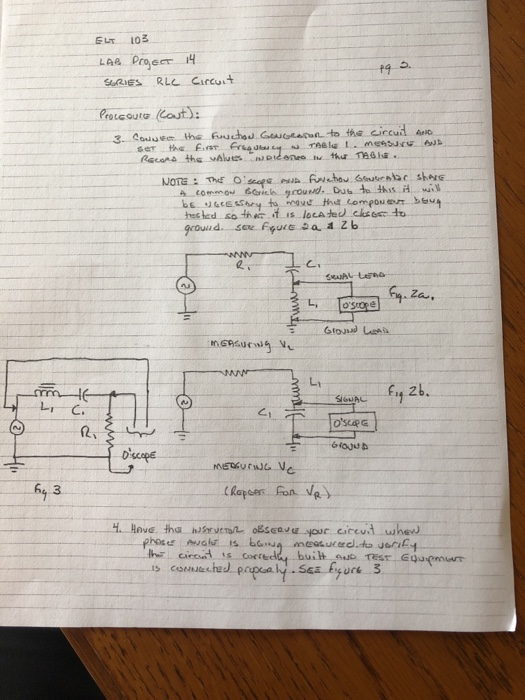 ELT 103
LAB Project 14
SERIES RLC Circuit
pg 2.
Procedure (Cont):
3. Connect the Function Generator to the circuit and
set the first frequency in Table 1. Measure and
Record the values indicated in the Table.
NOTE: The O'scope and Function Generator share
a common earth ground. Due to this it will
be necessary to move the component being
tested so that it is located closer to
ground. See Figure 2a & 2b
R1
C1
SIGNAL LEAD
L1
O'scope
Fig. 2a.
GROUND LEAD
MEASURING VL
L1
SIGNAL
Fig 2b.
C1
O'SCOPE
GROUND
MEASURING VC
(Repeat for VR)
L1
C1
R1
O'SCOPE
Fig 3
4. Have the instructor observe your circuit when
phase angle is being measured to verify
the circuit is correctly built and TEST Equipment
is connected properly. SEE Figure 3